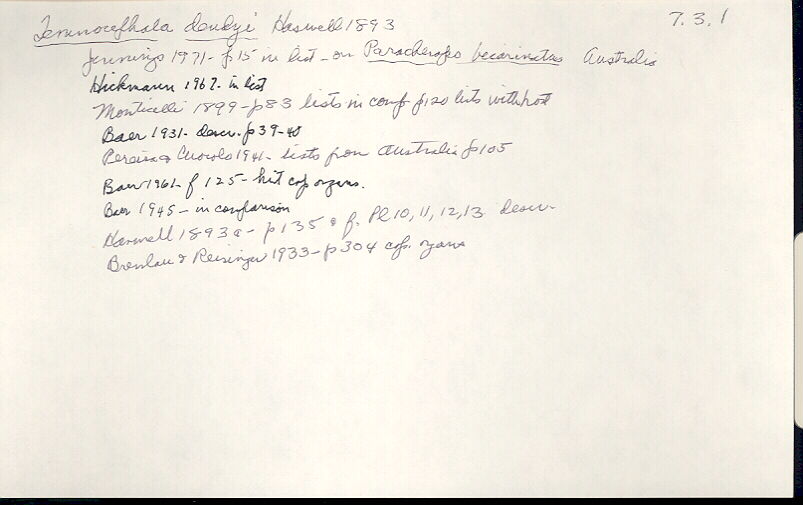 Temnocephala dendyi Haswell 1893 T.3.1
Jennings 1971- p15 in list - on Paracheraps bicarinatus Australia
Hickmann 1967- in list
Monticelli 1899- p83 lists in comp p120 lists with host
Baer 1931- descr. p39-40
Pereira & Cuocolo 1941- lists from Australia p105
Baer 1961- f 125- hist cop organs.
Baer 1945- in comparison
Haswell 1893a- p135 & f. Pl 10, 11, 12, 13. descr.
Bresslau & Reisinger 1933- p304 cop. organs